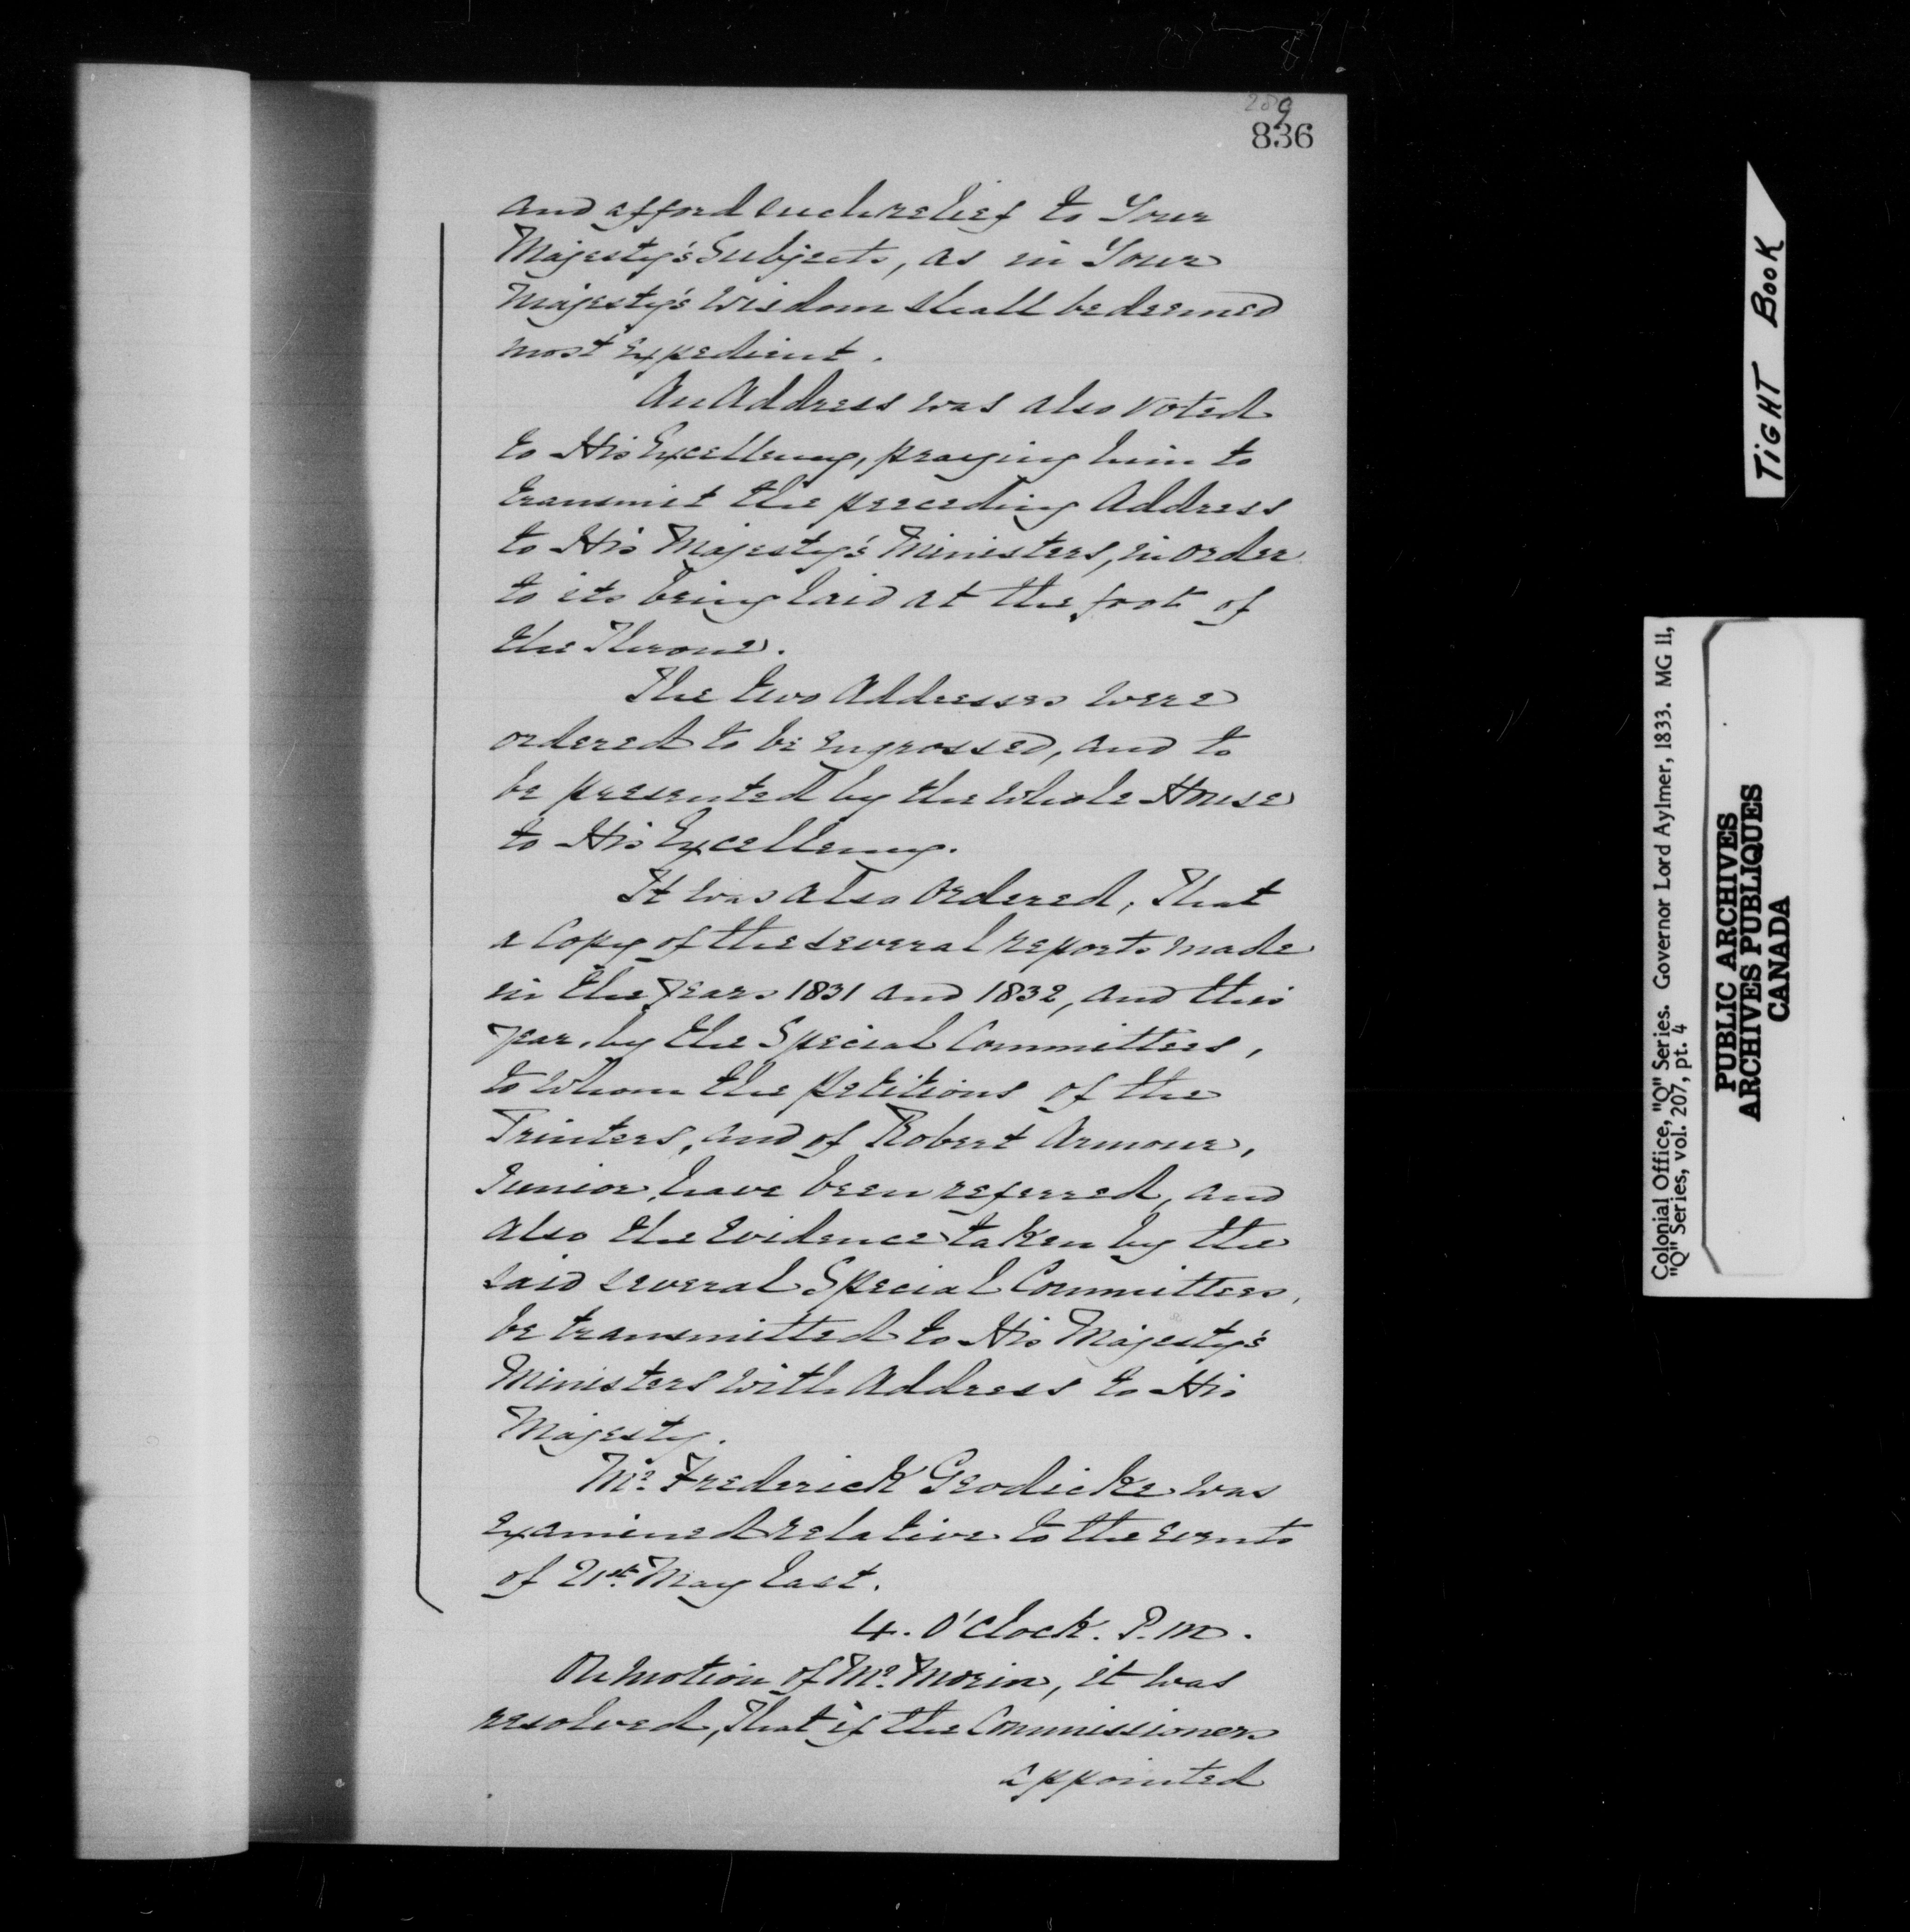 289
836
and afford such relief to Your
Majesty's Subjects, as in Your
Majesty's Wisdom shall be deemed
most expedient.
An Address was also voted
to His Excellency, praying him to
transmit the preceding Address
to His Majesty's Ministers, in order
to its being laid at the foot of
the Throne.
The two Addresses were
ordered to be engrossed, and to
be presented by the whole House
to His Excellency.
It was also Ordered, That
a Copy of the several reports made
in the years 1831 and 1832, and this
year, by the Special Committees,
to whom the petitions of the
Printers, and of Robert Armour,
Junior, have been referred, and
also the Evidence taken by the
said several Special Committees,
be transmitted to His Majesty's
Ministers with Address to His
Majesty.
Mr. Frederick Gerodicke was
examined relative to the events
of 21st. May last.
4. O'Clock. P.M.
On motion of Mr. Morin, it was
resolved, That if the Commissioners
appointed
TIGHT BOOK
Colonial Office, "Q" Series. Governor Lord Aylmer, 1833. MG 11,
"Q" Series, vol. 207, pt. 4
PUBLIC ARCHIVES
ARCHIVES PUBLIQUES
CANADA